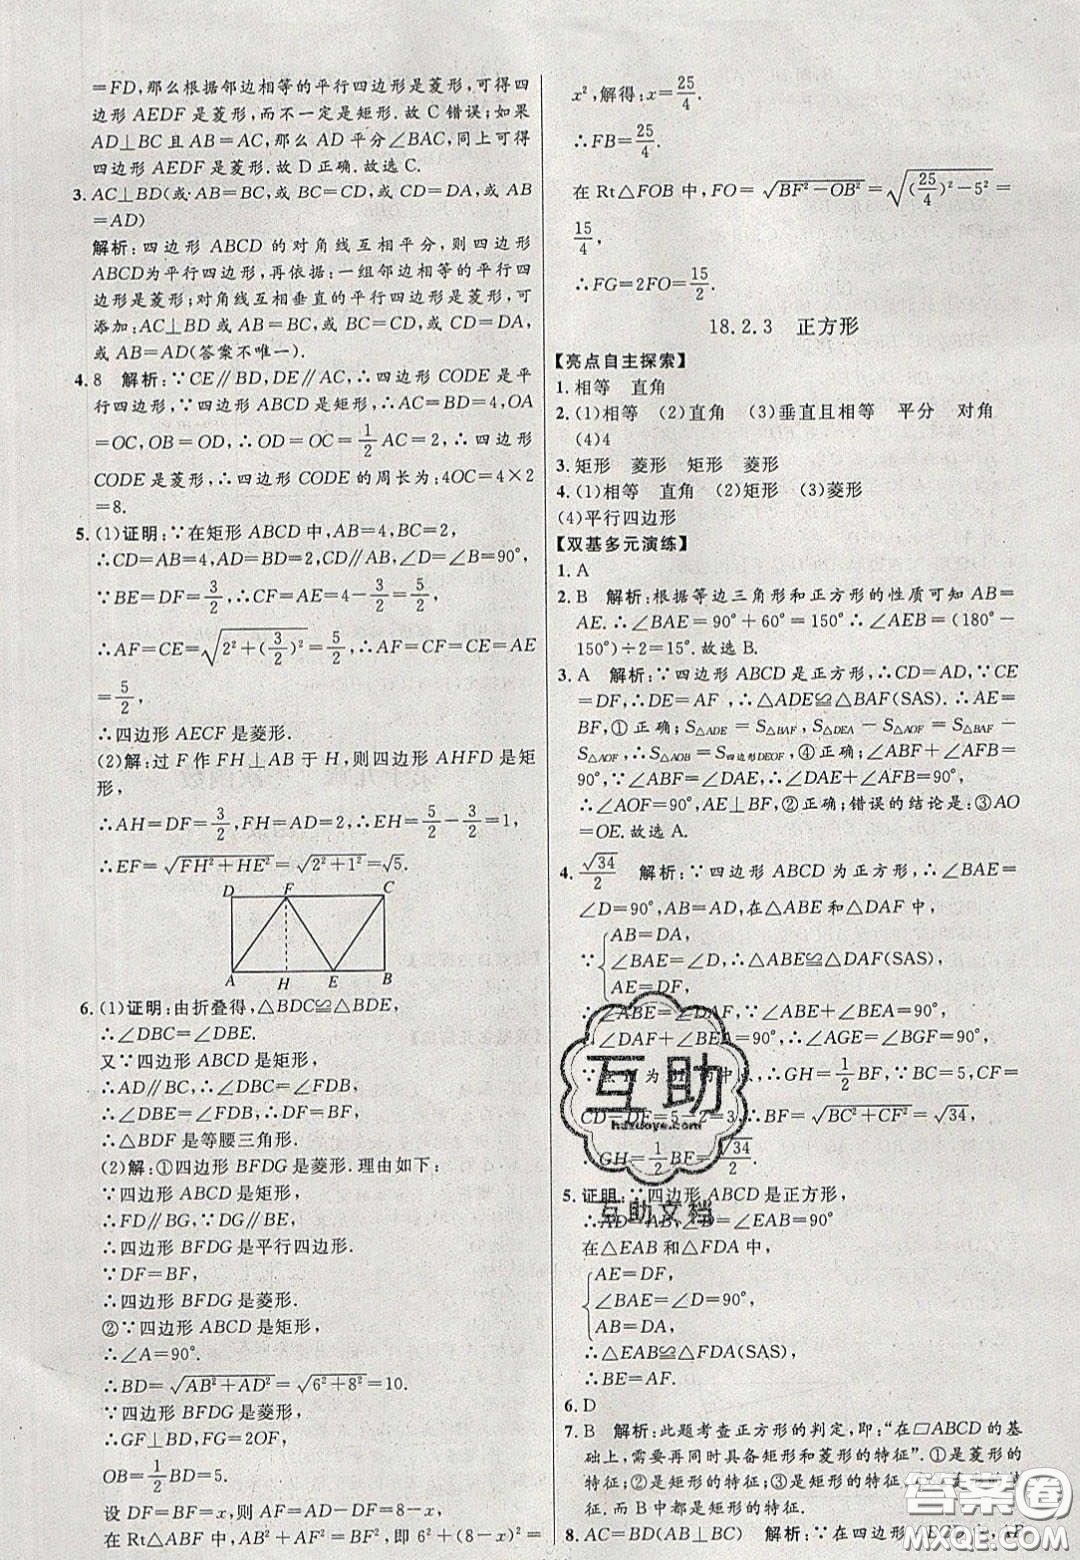 =FD,那么根据邻边相等的平行四边形是菱形,可得四
边形 AEDF 是菱形,而不一定是矩形.故 C 错误;如果
AD⊥BC 且 AB=AC,那么 AD 平分∠BAC,同上可得
四边形 AEDF 是菱形.故 D 正确.故选 C.
3. AC⊥BD(或·AB=BC,或 BC=CD,或 CD=DA,或 AB
=AD)
解析:四边形 ABCD 的对角线互相平分,则四边形
ABCD为平行四边形,再依据:一组邻边相等的平行四
边形是菱形;对角线互相垂直的平行四边形是菱形,可
添加:AC⊥BD 或 AB=BC 或 BC=CD 或 CD=DA,
或 AB=AD(答案不唯一).
4. 8 解析:∵CE∥BD,DE∥AC,∴四边形 CODE 是平
行四边形,∵四边形 ABCD 是矩形,∴AC=BD=4,OA
=OC,OB=OD,∴OD=OC=1/2 AC=2,∴四边形
CODE 是菱形,∴四边形 CODE 的周长为:4OC=4×2
=8.
5. (1)证明:∵在矩形 ABCD 中,AB=4,BC=2,
∴CD=AB=4,AD=BD=2,CD∥AB,∠D=∠B=90°,
∵BE=DF=3/2,∴CF=AE=4-3/2=5/2,
∴AF=CE=√(2²+(3/2)²)=5/2,∴AF=CF=CE=AE
=5/2,
∴四边形 AECF 是菱形.
(2)解:过 F 作 FH⊥AB 于 H,则四边形 AHFD 是矩
形,
∴AH=DF=3/2,FH=AD=2,∴EH=5/2-3/2=1,
∴EF=√(FH²+HE²)=√(2²+1²)=√5.
D F C
A H E B
6. (1)证明:由折叠得,△BDC≌△BDE,
∴∠DBC=∠DBE.
又∵四边形 ABCD 是矩形,
∴AD∥BC,∴∠DBC=∠FDB,
∴∠DBE=∠FDB,
∴△BDF 是等腰三角形.
(2)解:①四边形 BFDG 是菱形.理由如下:
∵四边形 ABCD 是矩形,
∴FD∥BG,∵DG∥BE,
∴四边形 BFDG 是平行四边形.
∵DF=BF,
∴四边形 BFDG 是菱形.
②∵四边形 ABCD 是矩形,
∴∠A=90°.
∴BD=√(AB²+AD²)=√(6²+8²)=10.
∵四边形 BFDG 是菱形,
∴GF⊥BD,FG=2OF,
OB=1/2 BD=5.
设 DF=BF=x,则 AF=AD-DF=8-x,
在 Rt△ABF 中,AB²+AF²=BF²,即 6²+(8-x)²=
x²,解得:x=25/4.
∴FB=25/4.
在 Rt△FOB 中,FO=√(BF²-OB²)=√((25/4)²-5²)=
15/4,
∴FG=2FO=15/2.
18.2.3 正方形
【亮点自主探索】
1. 相等 直角
2. (1)相等 (2)直角 (3)垂直且相等 平分 对角
(4)4
3. 矩形 菱形 矩形 菱形
4. (1)相等 直角 (2)矩形 (3)菱形
(4)平行四边形
【双基多元演练】
1. A
2. B 解析:根据等边三角形和正方形的性质可知 AB=
AE.∴∠BAE=90°+60°=150°∴∠AEB=(180°-
150°)÷2=15°.故选 B.
3. A 解析:∵四边形 ABCD 是正方形,∴CD=AD,∵CE
=DF,∴DE=AF,∴△ADE≌△BAF(SAS).∴AE=
BF,①正确;S△ADE=S△BAF,S△DEA-S△AOF=S△BAF-
S△AOF,∴S△AOB=S四边形DEOF,④正确;∴∠ABF+∠AFB
=90°,∵∠AFB=∠DEA,∴∠EAF+∠AFB=90°,
∴∠AOF=90°,AE⊥BF,②正确;错误的结论是:③AO
=OE.故选 A.
4. √34/2 解析:∵四边形 ABCD 为正方形,∴∠BAE=
∠D=90°,AB=AD,在△ABE 和△DAF 中,
AB=DA,
∵∠BAE=∠D,∴△ABE≌△DAF(SAS),
AE=DF,
∴∠ABE=∠DAF,∵∠ABE+∠BEA=90°,
∴∠DAF+∠BEA=90°,∴∠AGE=∠BGF=90°,
∵为中点,∴GH=1/2 BF,∵BC=5,CF=
CD-DF=5-2=3,∴BF=√(BC²+CF²)=√34,
∴GH=1/2 BF=√34/2.
5. 证明:∵四边形 ABCD 是正方形,
∴AD=AB,∠D=∠EAB=90°
在△EAB 和△FDA 中,
AE=DF,
∠BAE=∠D=90°,
AB=DA,
∴△EAB≌△FDA(SAS),
∴BE=AF.
6. D
7. B 解析:此题考查正方形的判定,即:“在▱ABCD 的基
础上,需要再同时具备矩形和菱形的特征”.①是菱形的
特征;②是矩形的特征;③是矩形的特征;是
征.而 B 中都是矩形的特征.
8. AC=BD(AB⊥BC) 解析:∵在四边形
互助
hazuoye.com
互助文档
答案卷